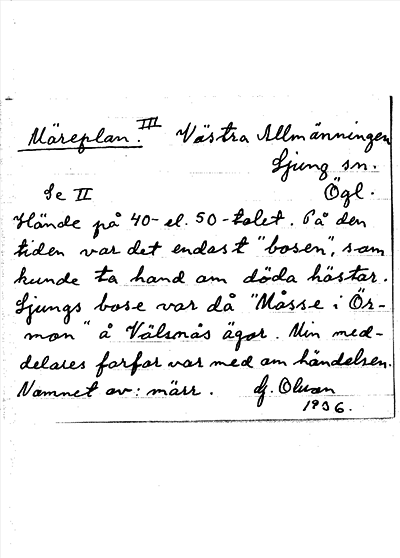 Märeplan. III Västra Allmänningen
Ljung sn.
Se II Ögl.
Hände på 40- el. 50-talet. På den
tiden var det endast "bosen", som
kunde ta hand om döda hästar.
Ljungs bose var då "Måsse i Ör-
mon" å Välsnäs ägor. Min med-
delares farfar var med om händelsen.
Namnet av: märr. G. Olson
1936.